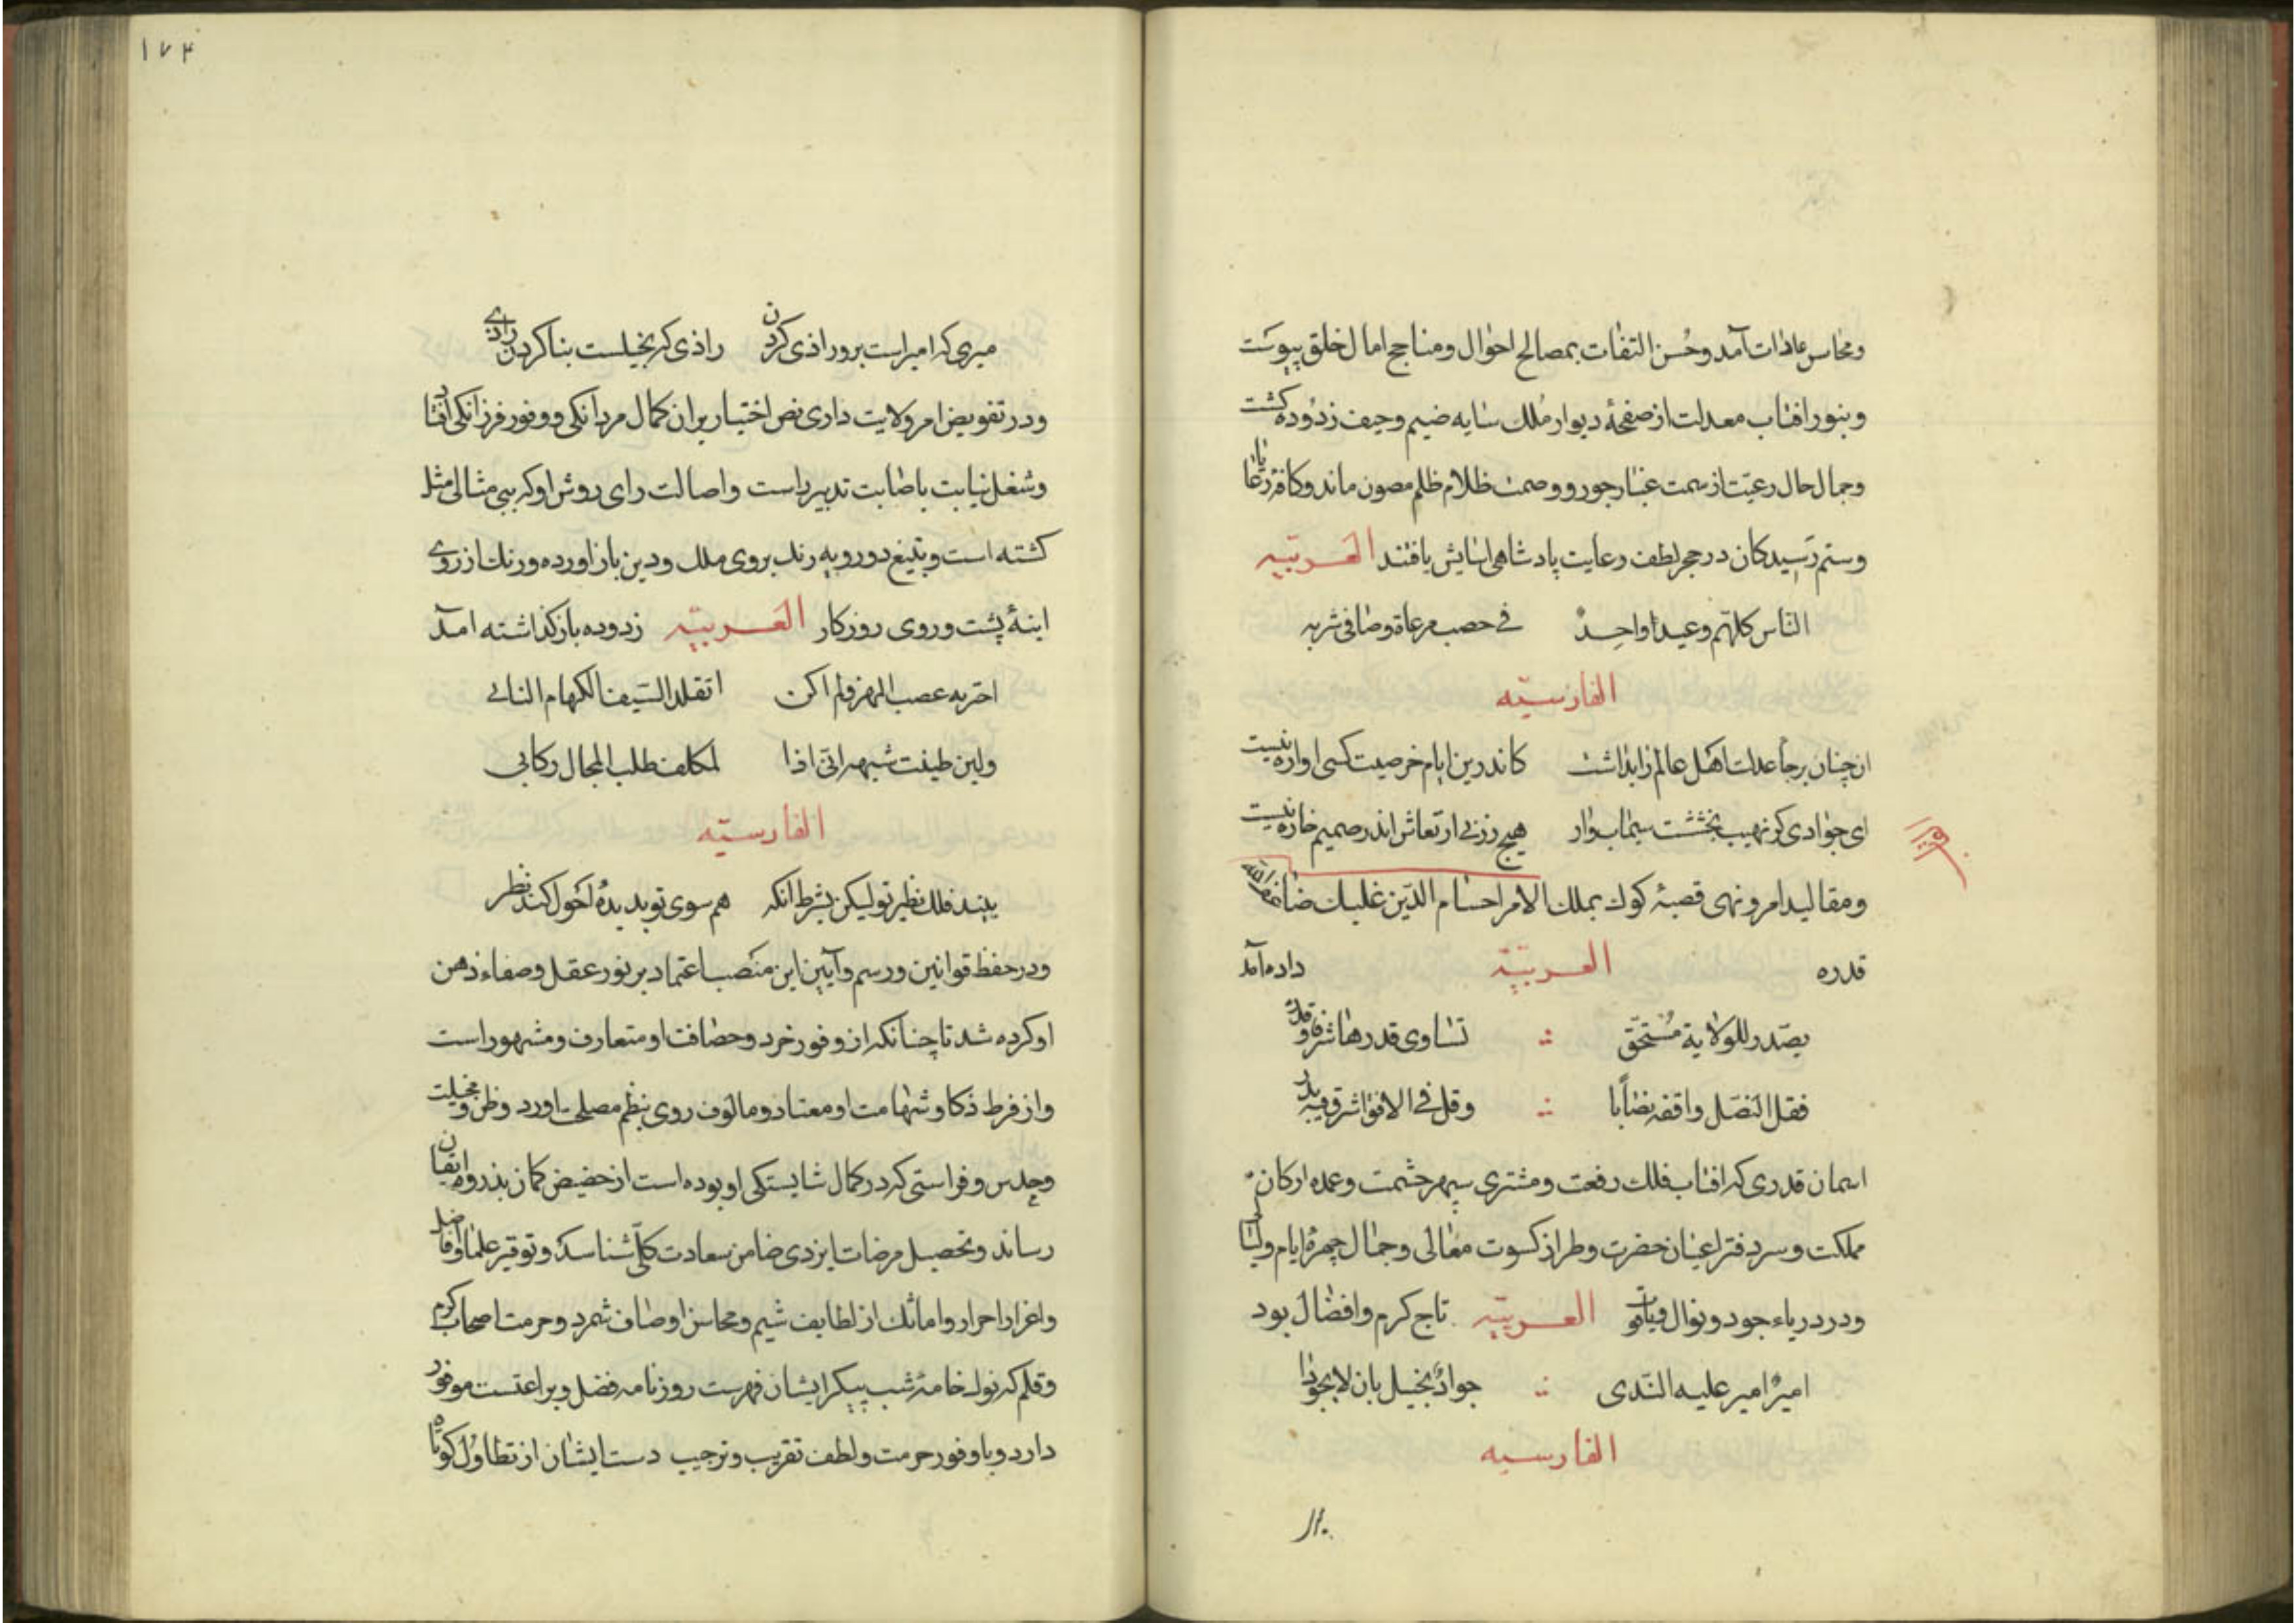 ومحاسن عادات آمد وحسن التفات بمصالح احوال ومناجح امال خلق پیوست
وبنور افتاب معدلت از صفحهٔ دیوار ملک سایه ضیم وحیف زدوده کشت
وجمال حال رعیت از سمت غبار جور و وصمت ظلام ظلم مصون ماند وکافهٔ رعایا
وستم رسیدکان در حجر لطف وعایت پادشاهی اسایش یافتند العربیه
الناس کلهم وعیدا واحد فی خصب مرعاة وصافی شربه
الفارسیه
ان چنان برجا عدلت اهل عالم را بداشت کاندرین ایام خر صیت کسی اواره نیست
ای جوادی کز نهیب بخششت سیماب وار هیچ زر بی ارتعاش اندر صمیم خاره نیست
ومقالید امر ونهی قصبهٔ کول بملک الامرا حسام الدین غلبک ضاعف الله
قدره العربیة داده آمد
یصدر للولایة مستحق تساوی قدرها شرفا وقدرا
فقل النصل واقفه نصابا وقل فی الافق اشرق فیه بدر
اسمان قدری که افتاب فلک رفعت ومشتری سپهر حشمت وعمده ارکان
مملکت وسر دفتر اعیان حضرت وطراز کسوت معالی وجمال چهرهٔ ایام ولیالی
ودر دریاء جود ونوال ویاقوت العربیه تاج کرم وافضال بود
امیر امیر علیه الندی جواد بخیل بان لا یجودا
الفارسیه
۱۷۴
میری که امیر است برو راذی کردن راذی که بخیلست بناکردن رادی
ودر تفویض امر ولایت داری نص اختیار بران کمال مردانکی و وفور فرزانکی افتاد
وشغل نیابت باصابت تدبیر راست واصالت رای روشن او که ببی مثالی مثل
کشته است وبتیغ دو رویه رنک بروی ملک ودین باز اورده ورنک از روی
اینهٔ پشت وروی روزکار العربیه زدوده باز کذاشته امد
اخترته عصب المهز فلم اکن اتقلد السیف الکهام النابی
ولین طیفت شبهه انی اذا لمکلف طلب المحال رکابی
الفارسیه
بیند فلک نظیر تو لیکن بشرط انکه هم سوی تو بدیدهٔ احول کند نظر
ودر حفظ قوانین ورسم وآیین این منصب اعتماد بر نور عقل وصفاء ذهن
او کرده شد تا چنانکه از وفور خرد وحصافت او متعارف ومشهور است
واز فرط ذکا وشهامت او معتاد ومالوف روی بنظم مصلحت اورد وظن ومخیلت
وحدس وفراستی که در کمال شایستکی او بوده است از حضیض کمان بذروهٔ ایقان
رساند وتحصیل مرضات ایزدی ضامن سعادت کلی شناسد وتوقیر علما وافاضل
واعزاز احرار واماثل از لطایف شیم ومحاسن اوصاف شمرد وحرمت اصحاب کرم
وقلم که نوک خامهٔ شب پیکر ایشان فهرست روزنامه فضل وبراعتست موفور
دارد وبا وفور حرمت ولطف تقریب وترحیب دست ایشان از تطاول کوتاه